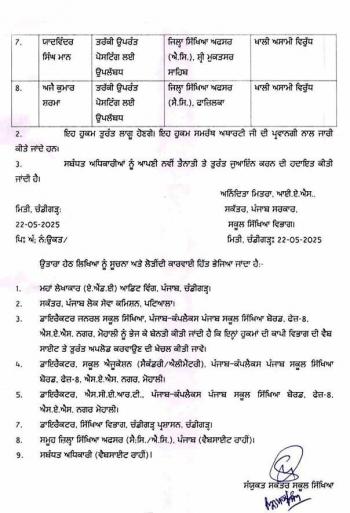 7. ਯਾਦਵਿੰਦਰ ਤਰੱਕੀ ਉਪਰੰਤ ਜ਼ਿਲ੍ਹਾ ਸਿੱਖਿਆ ਅਫਸਰ ਖਾਲੀ ਅਸਾਮੀ ਵਿਰੁੱਧ
ਸਿੰਘ ਮਾਨ ਪੋਸਟਿੰਗ ਲਈ (ਐ.ਸਿ.), ਸ਼੍ਰੀ ਮੁਕਤਸਰ
ਉਪਲੱਬਧ ਸਾਹਿਬ
8. ਅਜੈ ਕੁਮਾਰ ਤਰੱਕੀ ਉਪਰੰਤ ਜ਼ਿਲ੍ਹਾ ਸਿੱਖਿਆ ਅਫਸਰ ਖਾਲੀ ਅਸਾਮੀ ਵਿਰੁੱਧ
ਸ਼ਰਮਾ ਪੋਸਟਿੰਗ ਲਈ (ਸੈ.ਸਿ.), ਫਾਜ਼ਿਲਕਾ
ਉਪਲੱਬਧ
2. ਇਹ ਹੁਕਮ ਤੁਰੰਤ ਲਾਗੂ ਹੋਣਗੇ। ਇਹ ਹੁਕਮ ਸਮਰੱਥ ਅਥਾਰਟੀ ਜੀ ਦੀ ਪ੍ਰਵਾਨਗੀ ਨਾਲ ਜਾਰੀ
ਕੀਤੇ ਜਾਂਦੇ ਹਨ।
3. ਸਬੰਧਤ ਅਧਿਕਾਰੀਆਂ ਨੂੰ ਆਪਣੀ ਨਵੀਂ ਤੈਨਾਤੀ ਤੇ ਤੁਰੰਤ ਜੁਆਇੰਨ ਕਰਨ ਦੀ ਹਦਾਇਤ ਕੀਤੀ
ਜਾਂਦੀ ਹੈ।
ਅਨਿੰਦਿਤਾ ਮਿਤਰਾ, ਆਈ.ਏ.ਐਸ.,
ਮਿਤੀ, ਚੰਡੀਗੜ੍ਹ: ਸਕੱਤਰ, ਪੰਜਾਬ ਸਰਕਾਰ,
22-05-2025 ਸਕੂਲ ਸਿੱਖਿਆ ਵਿਭਾਗ।
ਪਿੱ: ਅੰ: ਨੰ:ਉਕਤ/ ਮਿਤੀ, ਚੰਡੀਗੜ੍ਹ: 22-05-2025
ਉਤਾਰਾ ਹੇਠ ਲਿਖਿਆ ਨੂੰ ਸੂਚਨਾ ਅਤੇ ਲੋੜੀਂਦੀ ਕਾਰਵਾਈ ਹਿੱਤ ਭੇਜਿਆ ਜਾਂਦਾ ਹੈ:-
1. ਮਹਾਂ ਲੇਖਾਕਾਰ (ਏ.ਐਂਡ.ਈ) ਆਡਿਟ ਵਿੰਗ, ਪੰਜਾਬ, ਚੰਡੀਗੜ੍ਹ।
2. ਸਕੱਤਰ, ਪੰਜਾਬ ਲੋਕ ਸੇਵਾ ਕਮਿਸ਼ਨ, ਪਟਿਆਲਾ।
3. ਡਾਇਰੈਕਟਰ ਜਨਰਲ ਸਕੂਲ ਸਿੱਖਿਆ, ਪੰਜਾਬ-ਕੰਪਲੈਕਸ ਪੰਜਾਬ ਸਕੂਲ ਸਿੱਖਿਆ ਬੋਰਡ, ਫੇਜ਼-8,
ਐਸ.ਏ.ਐਸ. ਨਗਰ, ਮੋਹਾਲੀ ਨੂੰ ਭੇਜ ਕੇ ਬੇਨਤੀ ਕੀਤੀ ਜਾਂਦੀ ਹੈ ਕਿ ਇਨ੍ਹਾਂ ਹੁਕਮਾਂ ਦੀ ਕਾਪੀ ਵਿਭਾਗ ਦੀ ਵੈਬ
ਸਾਈਟ ਤੇ ਤੁਰੰਤ ਅਪਲੋਡ ਕਰਵਾਉਣ ਦੀ ਖੇਚਲ ਕੀਤੀ ਜਾਵੇ।
4. ਡਾਇਰੈਕਟਰ, ਸਕੂਲ ਐਜੂਕੇਸ਼ਨ (ਸੈਕੰਡਰੀ/ਐਲੀਮੈਂਟਰੀ), ਪੰਜਾਬ-ਕੰਪਲੈਕਸ ਪੰਜਾਬ ਸਕੂਲ ਸਿੱਖਿਆ
ਬੋਰਡ, ਫੇਜ਼-8, ਐਸ.ਏ.ਐਸ. ਨਗਰ, ਮੋਹਾਲੀ।
5. ਡਾਇਰੈਕਟਰ, ਐਸ.ਸੀ.ਈ.ਆਰ.ਟੀ., ਪੰਜਾਬ-ਕੰਪਲੈਕਸ ਪੰਜਾਬ ਸਕੂਲ ਸਿੱਖਿਆ ਬੋਰਡ, ਫੇਜ਼-8,
ਐਸ.ਏ.ਐਸ. ਨਗਰ ਮੋਹਾਲੀ।
7. ਡਾਇਰੈਕਟਰ, ਸਿੱਖਿਆ ਵਿਭਾਗ, ਚੰਡੀਗੜ੍ਹ ਪ੍ਰਸ਼ਾਸਨ, ਚੰਡੀਗੜ੍ਹ।
8. ਸਮੂਹ ਜ਼ਿਲ੍ਹਾ ਸਿੱਖਿਆ ਅਫਸਰ (ਸੈ:ਸਿ:/ਐ.ਸਿ), ਪੰਜਾਬ (ਵੈਬਸਾਈਟ ਰਾਹੀਂ)।
9. ਸਬੰਧਤ ਅਧਿਕਾਰੀ (ਵੈਬਸਾਈਟ ਰਾਹੀਂ)।
ਸੰਯੁਕਤ ਸਕੱਤਰ ਸਕੂਲ ਸਿੱਖਿਆ